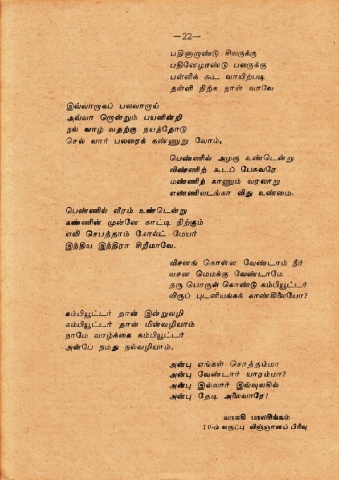 —22—
பதினாறாண்டு சிலருக்கு
பதினேழாண்டு பலருக்கு
பள்ளிக் கூட வாயிற்படி
தள்ளி நிற்க நான் வாவே
இவ்வாறாகப் பலவாறாய்
அவ்வா றொன்றும் பயனின்றி
நல் வாழ் வதற்கு நயத்தோடு
செல் வார் பலரைக் கண்ணுறு வோம்.
பெண்ணில் அழகு உண்டென்று
விண்ணிற் கூடப் பேசுவரே
மண்ணிற் காணும் வரலாறு
எண்ணிலடங்கா விது உண்மை.
பெண்ணில் வீரம் உண்டென்று
கண்ணின் முன்னே காட்டி நிற்கும்
எலி செபத்தாம் கோல்ட் மேயர்
இந்திய இந்திரா சிறீமாவே.
விசனங் கொள்ள வேண்டாம் நீர்
வசன மெமக்கு வேண்டாமே
நரு பொருள் கொண்டு கம்பியூட்டர்
விருப் புடனியங்கக் காண்கிலையோ?
கம்பியூட்டர் தான் இன்றுவழி
கம்பியூட்டர் தான் மின்வழியாம்
நாமே வாழ்க்கை கம்பியூட்டர்
அன்பே நமது நல்வழியாம்.
அன்பு எங்கள் சொத்தம்மா
அன்பு வேண்டார் யாரம்மா?
அன்பு இல்லார் இவ்வுலகில்
அன்பு தேடி அலைவாரே!
வாசுகி பாலசிங்கம்
10-ம் வகுப்பு விஞ்ஞானப் பிரிவு